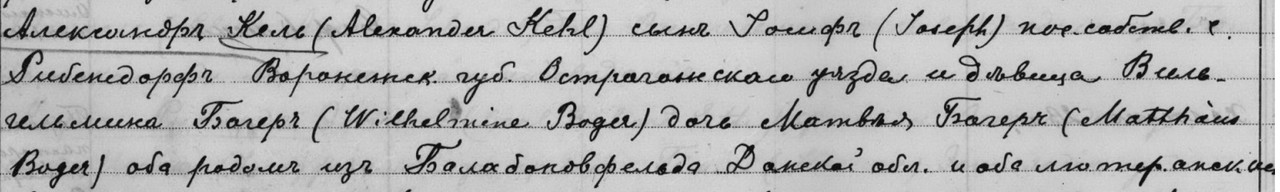 Александръ Кель (Alexander Kehl) сынъ Іосифъ (Joseph) пос. собств. с.
Рибенсдорфъ Воронежск. губ. Острагожскаго уѣзда и дѣвица Виль-
гельмина Богеръ (Wilhelmine Boger) дочь Матвѣя Богеръ (Matthäus
Boger) оба родомъ изъ Балабоновфельда Донской обл. и оба лютеранск.